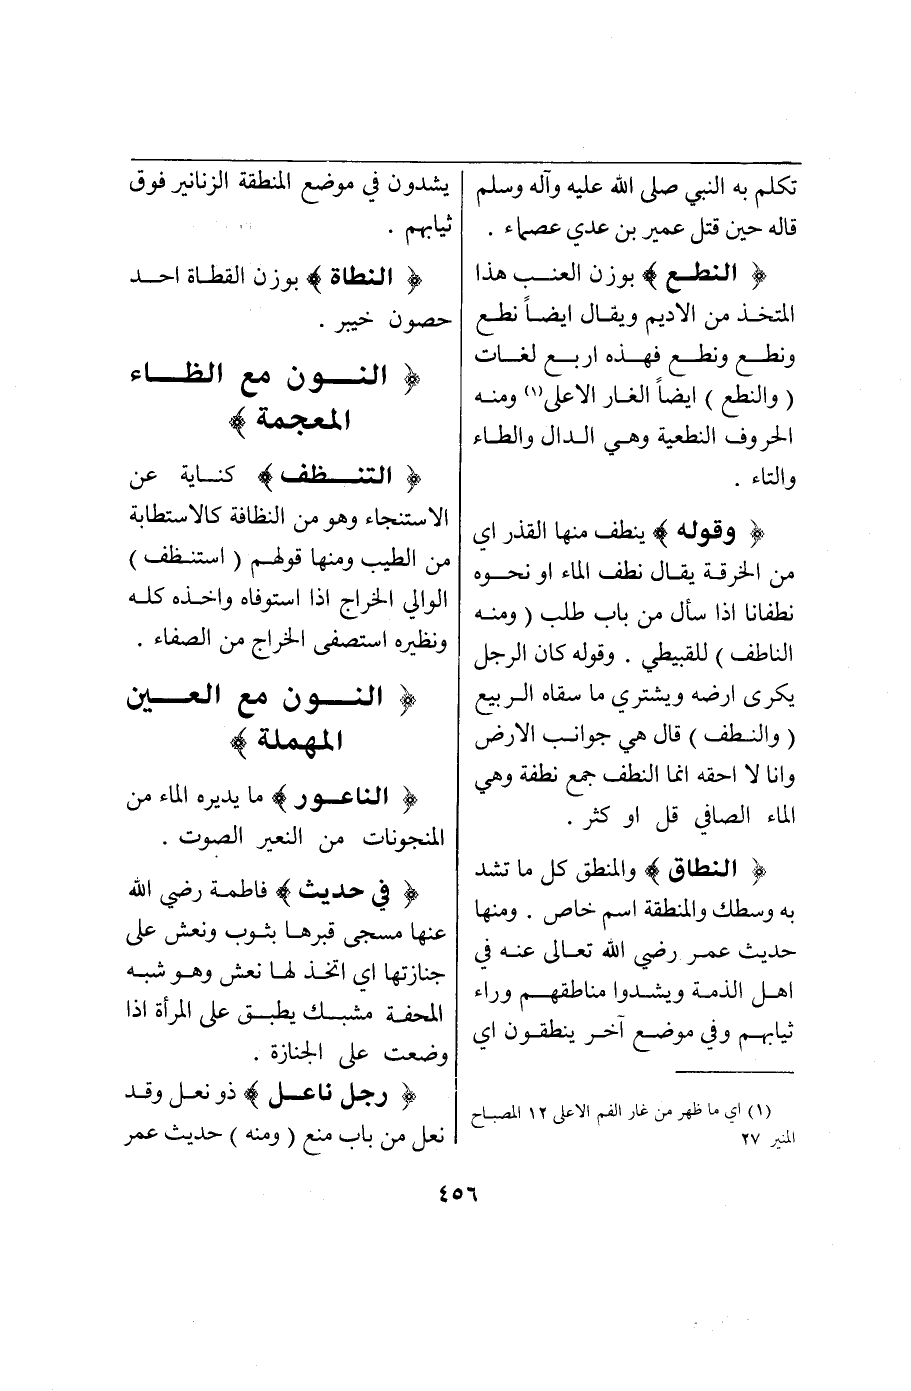 تكلم به النبي صلى الله عليه وآله وسلم
قاله حين قتل عمير بن عدي عصماء .
﴿ النطـع ﴾ بوزن العنـب هذا
المتخـذ من الاديم ويقـال ايضـاً نطـع
ونطـع ونطـع فهـذه اربـع لغـات
( والنطع ) ايضاً الغـار الاعلى(١) ومنـه
الحروف النطعية وهـي الـدال والطـاء
والتاء .
﴿ وقوله ﴾ ينطف منها القذر اي
من الخرقـة يقـال نطف الماء او نحـوه
نطفانا اذا سأل من باب طلب ( ومنـه
الناطف ) للقبيطي . وقوله كان الرجل
يكرى ارضه ويشتري ما سقاه الربيع
( والنـطف ) قال هي جوانـب الارض
وانا لا احقه انما النطف جمع نطفة وهي
الماء الصافي قل او كثر .
﴿ النطاق ﴾ والمنطق كل ما تشد
به وسطك والمنطقة اسم خاص . ومنها
حديث عمـر رضي الله تعـالى عنـه في
اهـل الذمـة ويشـدوا مناطقهـم وراء
ثيابهـم وفي موضـع آخـر ينطقـون اي
(١) اي ما ظهر من غار الفم الاعلى ١٢ المصباح
المنير ٢٧
يشدون في موضع المنطقة الزنانير فوق
ثيابهم .
﴿ النطاة ﴾ بوزن القطـاة احـد
حصون خيبر .
﴿ النـــون مع الظـــاء
المعجمة ﴾
﴿ التنـــظف ﴾ كنـاية عن
الاستنجاء وهو من النظافة كالاستطابة
من الطيب ومنها قولهـم ( استنـظف )
الوالي الخراج اذا استوفاه واخـذه كلـه
ونظيره استصفى الخراج من الصفاء .
﴿ النـــون مع العـــين
المهملة ﴾
﴿ الناعـور ﴾ ما يديره الماء من
المنجونات من النعير الصوت .
﴿ في حديث ﴾ فاطمـة رضي الله
عنها مسجى قبرهـا بثـوب ونعش على
جنازتها اي اتخـذ لهـا نعش وهـو شبـه
المحفـة مشبـك يطبـق على المرأة اذا
وضعت على الجنازة .
﴿ رجل ناعـل ﴾ ذو نعـل وقـد
نعل من باب منع ( ومنه ) حديث عمر
٤٥٦